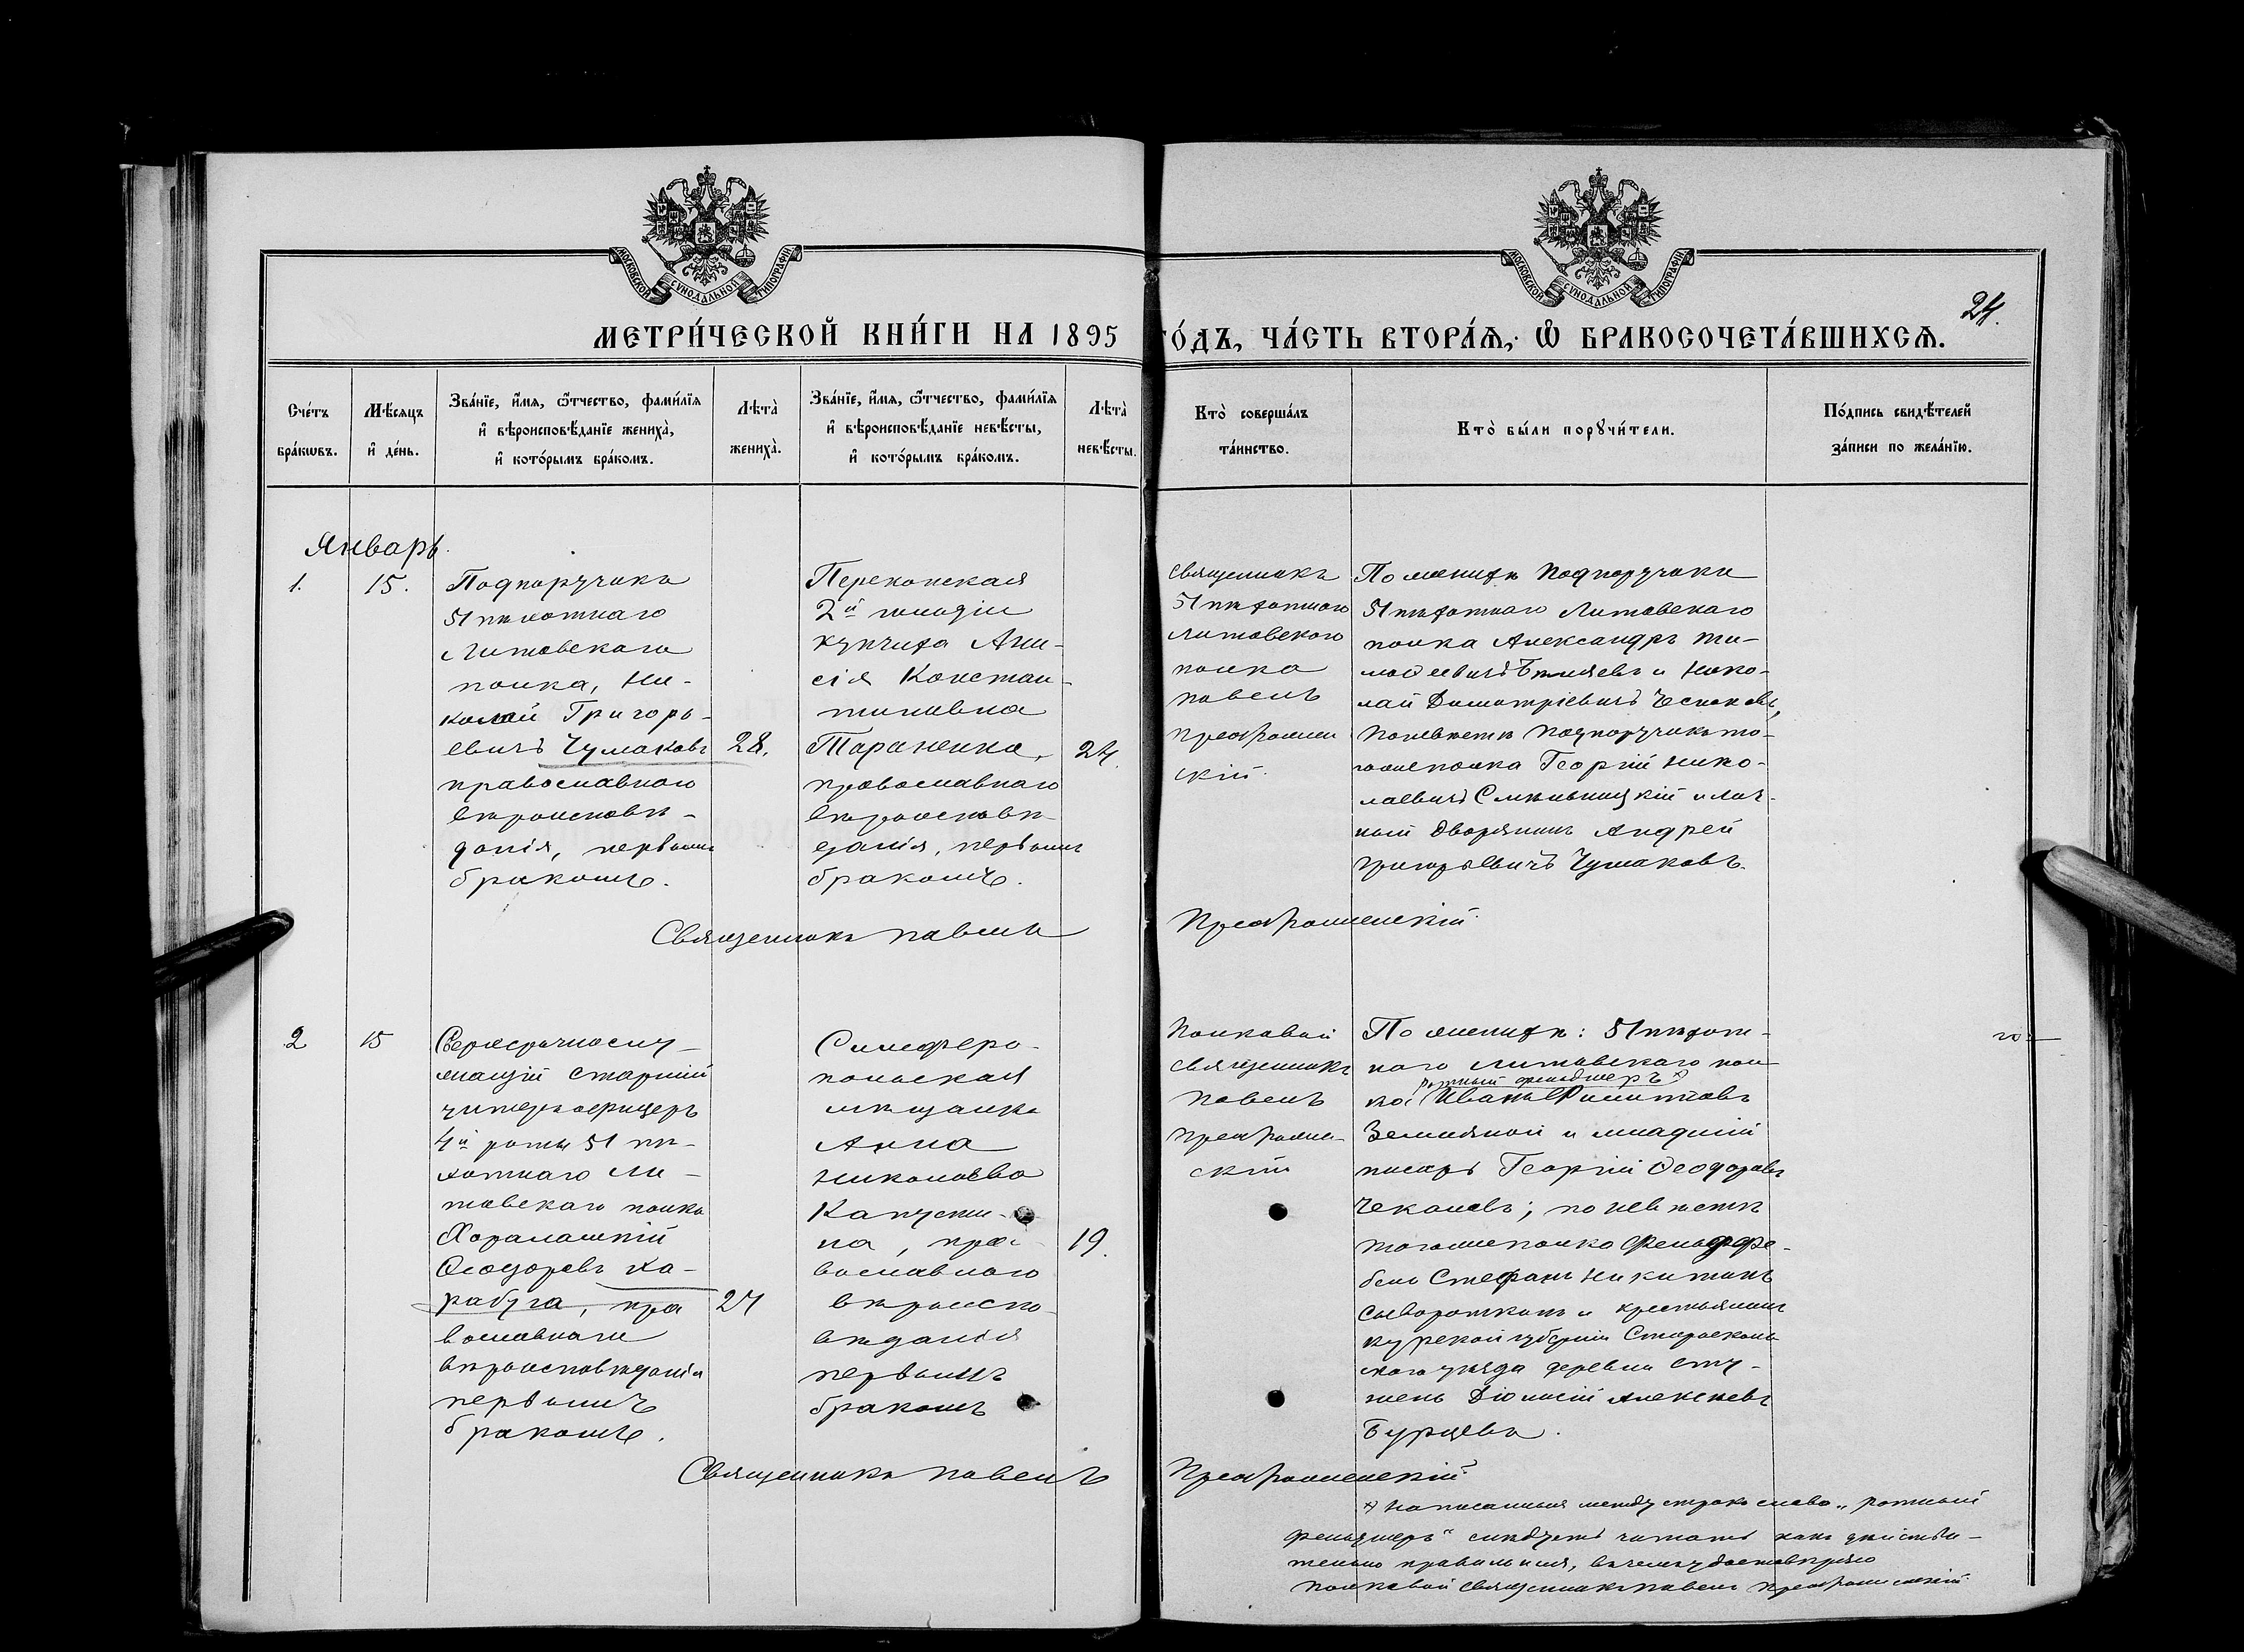 МОСКОВСКОЙ СѴНОДАЛЬНОЙ ТИПОГРАФІИ
МОСКОВСКОЙ СѴНОДАЛЬНОЙ ТИПОГРАФІИ
24.
МЕТРИ́ЧЕСКОЙ КНИ́ГИ НА 1895 ГО́ДЪ, ЧА́СТЬ ВТОРА́Я, Ѡ БРАКОСОЧЕТА́ВШИХСЯ.
Сче́тъ бра́кѡвъ.
Мѣ́сяцъ и҆ де́нь.
Зва́нїе, и҆́мя, ѻ҆́тчество, фами́лїя
и҆ вѣроисповѣ́данїе жениха̀,
и҆ кото́рымъ бра́комъ.
Лѣта̀ жениха̀.
Зва́нїе, и҆́мя, ѻ҆́тчество, фами́лїя
и҆ вѣроисповѣ́данїе невѣ́сты,
и҆ кото́рымъ бра́комъ.
Лѣта̀ невѣ́сты.
Кто̀ соверша́лъ та́инство.
Кто̀ бы́ли порꙋчи́тели.
По́дпись свидѣ́телей
за́писи по жела́нїю.
Январь.
1.
15.
Подпоручикъ
51 пѣхотнаго
Литовскаго
полка, Ни-
колай Григорь-
евичъ Чумаковъ
православнаго
вѣроисповѣ-
данія, первымъ
бракомъ.
28.
Перекопская
2й гильдіи
купчиха Ани-
сія Констан-
тиновна
Тараненко,
православнаго
вѣроисповѣ-
данія, первымъ
бракомъ.
24.
Священникъ
51 пѣхотнаго
Литовскаго
полка
Павелъ
Преображен
скій.
По женихѣ Подпоручики
51 пѣхотнаго Литовскаго
полка Александръ Ти-
моѳеевичъ и Нико-
лай Димитріевичъ Чесноковъ,
По невѣстѣ Подпоручикъ то-
гоже полка Георгій Нико-
лаевичъ и лич-
ный дворянинъ Андрей
Григорьевичъ Чумаковъ.
Священникъ Павелъ Преображенскій.
2
15
Сверхсрочнослу-
жащій старшій
унтеръ офицеръ
4й роты 51 пѣ-
хотнаго Ли-
товскаго полка
Харалампій
Ѳеодоровъ Ка-
рабута, пра
вославнаго
вѣроисповѣданія
первымъ
бракомъ.
27
Симферо-
польская
мѣщанка
Анна
Николаева
Капусти-
на, пра-
вославнаго
вѣроиспо-
вѣданія
первымъ
бракомъ
19.
Полковой
священникъ
Павелъ
Преображен-
скій
По женихѣ: 51 пѣхот-
наго Литовскаго пол-
ротный фельдшеръ
ка: Иванъ Филиповъ
Земляной и младшій
писарь Георгій Ѳеодоровъ
Чекановъ; по невѣстѣ
тогоже полка Фельдфе-
бель Стефанъ Никитинъ
Сывороткинъ и крестьянинъ
Курской губерніи Староосколь
скаго уѣзда деревни
Діонисій Алексѣевъ
Бурцевъ.
Священникъ Павелъ Преображенскій
Написанныя между строкъ слова „ротный
фельдшеръ“ слѣдуетъ читать какъ дѣйстви-
тельно правильныя, въ чемъ удостовѣряю
полковой священникъ Павелъ Преображенскій